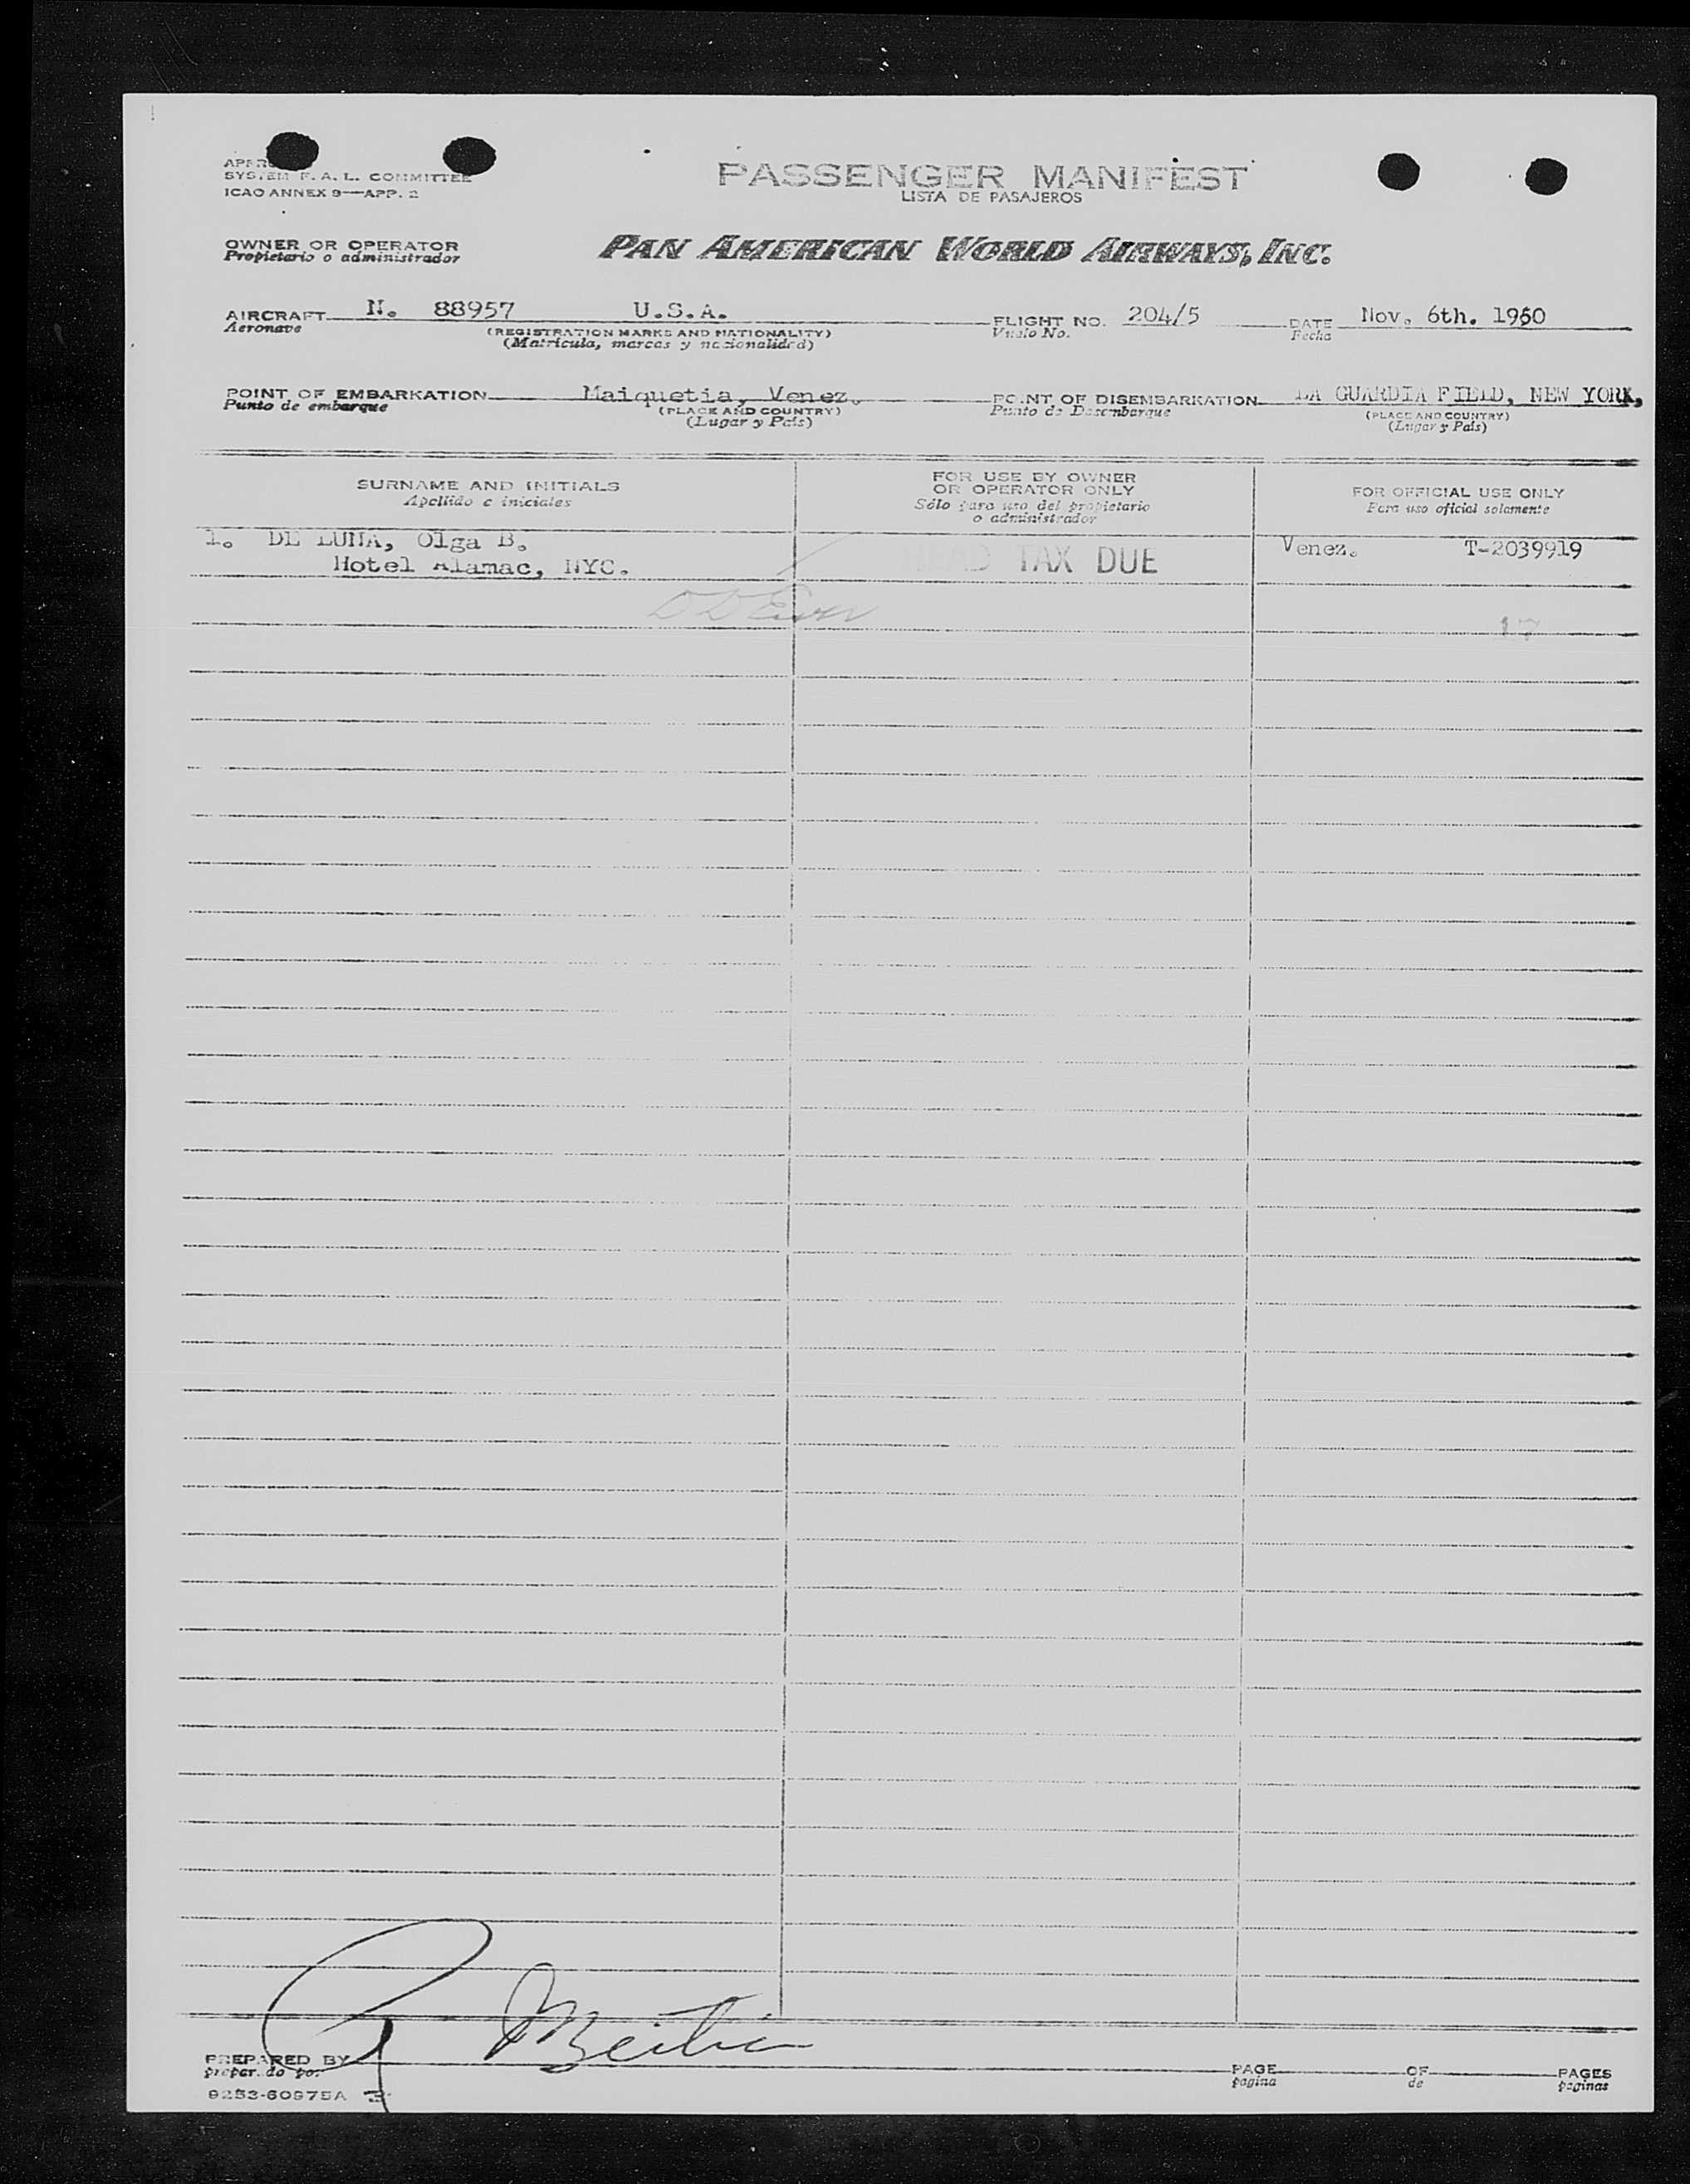 SYSTEM F. A. L. COMMITTEE
ICAO ANNEX 9—APP. 2
PASSENGER MANIFEST
LISTA DE PASAJEROS
OWNER OR OPERATOR
Propietario o administrador
PAN AMERICAN WORLD AIRWAYS, INC.
AIRCRAFT N. 88957 U.S.A. FLIGHT NO. 204/5 DATE Nov. 6th. 1950
Aeronave (REGISTRATION MARKS AND NATIONALITY) Vuelo No. Fecha
(Matricula, marcas y nacionalidad)
POINT OF EMBARKATION Maiquetia, Venez. POINT OF DISEMBARKATION LA GUARDIA FIELD, NEW YORK,
Punto de embarque (PLACE AND COUNTRY) Punto de Desembarque (PLACE AND COUNTRY)
(Lugar y País) (Lugar y País)
SURNAME AND INITIALS
Apellido e iniciales
FOR USE BY OWNER
OR OPERATOR ONLY
Sólo para uso del propietario
o administrador
FOR OFFICIAL USE ONLY
Para uso oficial solamente
1. DE LUNA, Olga B. HEAD TAX DUE Venez. T-2039919
Hotel Alamac, NYC.
17
PREPARED BY
preparado por
PAGE OF PAGES
pagina de paginas
9253-60975A